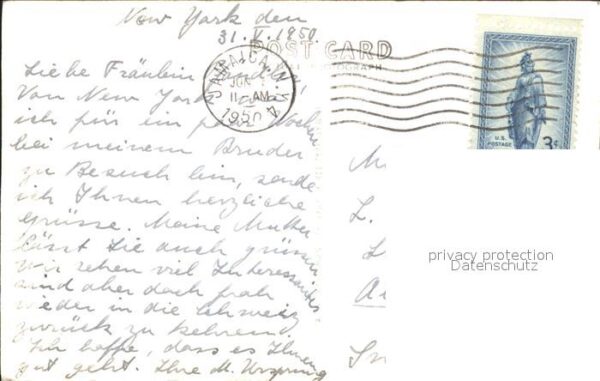 New York den
31. V. 1950
POST CARD
JAMAICA, N.Y.
JUN 1
11 AM
1950
Liebe Fräulein
Von New York wo
ich für ein paar Wochen
bei meinem Bruder
zu Besuch bin, sende
ich Ihnen herzliche
Grüsse. Meine Mutter
lässt Sie auch grüssen
Wir sehen viel Interessantes
sind aber doch froh
wieder in die Schweiz
zurück zu kehren.
Ich hoffe, dass es Ihnen
gut geht. Ihre M. Ursprung
U.S.
POSTAGE
3¢
M
L.
L
A
privacy protection
Datenschutz